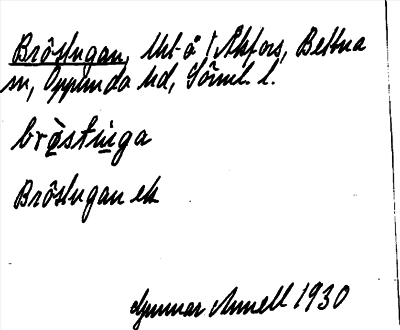 Bröstugan, Uht-å t Åkfors, Bettna
sn, Oppunda hd, Söml. l.
bròstuga
Bröstugan ek
Gunnar Annell 1930